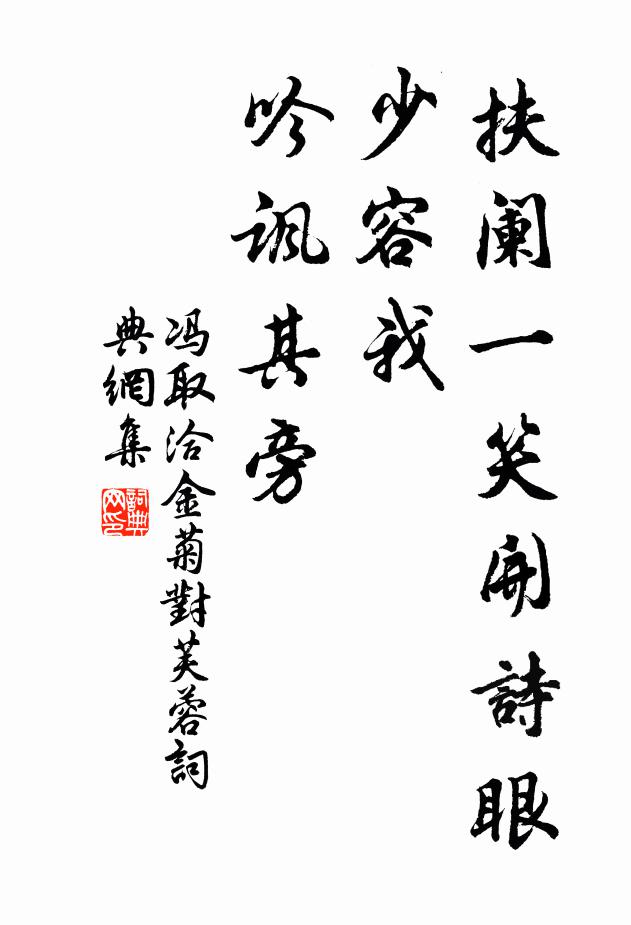 扶阑一笑開詩眼
少容我
吟諷其旁
冯取洽金菊對芙蓉詞
典網集
詞典网印